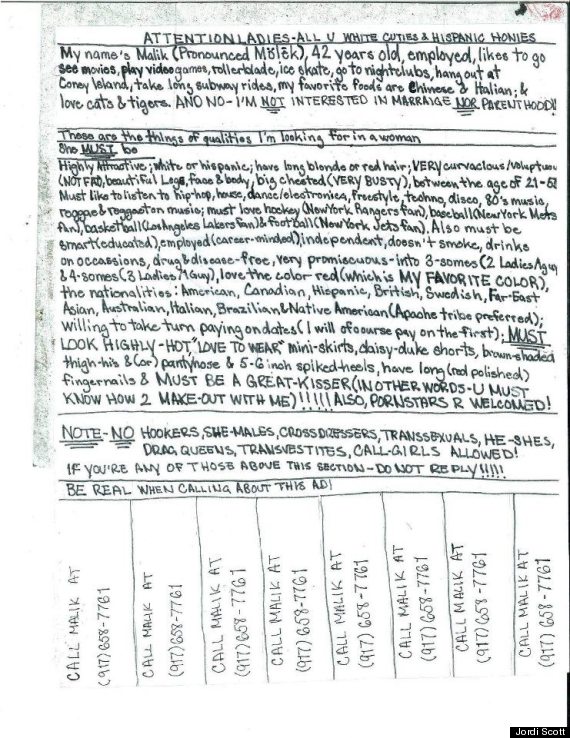 ATTENTION LADIES-ALL U WHITE CUTIES & HISPANIC HONIES
My name's Malik (Pronounced Mŏlēk), 42 years old, employed, likes to go
see movies, play video games, rollerblade, ice skate, go to nightclubs, hang out at
Coney Island, take long subway rides, my favorite foods are Chinese & Italian; &
love cats & tigers. AND NO- I'M NOT INTERESTED IN MARRAIGE NOR PARENTHOOD!!
These are the things of qualities I'm looking for in a woman
She MUST be
Highly Attractive; White or hispanic; have long blonde or red hair; VERY curvacious/voluptuou
(NOT FAT), beautiful Legs, face & body, big chested (VERY BUSTY), between the age of 21-52
Must like to listen to hip-hop, house, dance/electronica, freestyle, techno, disco, 80's music,
reggae & reggaeton music; must love hockey (New York Rangers fan), baseball (New York Mets
fan), basketball (Los Angeles Lakers fan) & football (New York Jets fan). Also must be
smart (educated), employed (career-minded) independent, doesn't smoke, drinks
on occassions, drug & disease-free, very promiscuous-into 3-somes (2 Ladies/1 guy)
& 4-somes (3 Ladies/1 Guy), love the color red (which is MY FAVORITE COLOR),
the nationalities: American, Canadian, Hispanic, British, Swedish, Far-East
Asian, Australian, Italian, Brazilian & Native American (Apache tribe preferred);
willing to take turn paying on dates (I will ofcourse pay on the first); MUST
LOOK HIGHLY-HOT, "LOVE TO WEAR" mini-skirts, daisy-duke shorts, brown-shaded
thigh-his & (or) pantyhose & 5-6 inch spiked-heels, have long (red polished)
fingernails & MUST BE A GREAT-KISSER (IN OTHER WORDS-U MUST
KNOW HOW 2 MAKE-OUT WITH ME)!!!!!! ALSO, PORNSTARS R WELCOMED!
NOTE-NO HOOKERS, SHE-MALES, CROSSDRESSERS, TRANSSEXUALS, HE-SHES,
DRAG QUEENS, TRANSVESTITES, CALL-GIRLS ALLOWED!
IF YOU'RE ANY OF THOSE ABOVE THIS SECTION-DO NOT REPLY!!!!!
BE REAL WHEN CALLING ABOUT THIS AD!
CALL MALIK AT
(917) 658-7761
CALL MALIK AT
(917) 658-7761
CALL MALIK AT
(917) 658-7761
CALL MALIK AT
(917) 658-7761
CALL MALIK AT
(917) 658-7761
CALL MALIK AT
(917) 658-7761
CALL MALIK AT
(917) 658-7761
CALL MALIK AT
(917) 658-7761
Jordi Scott